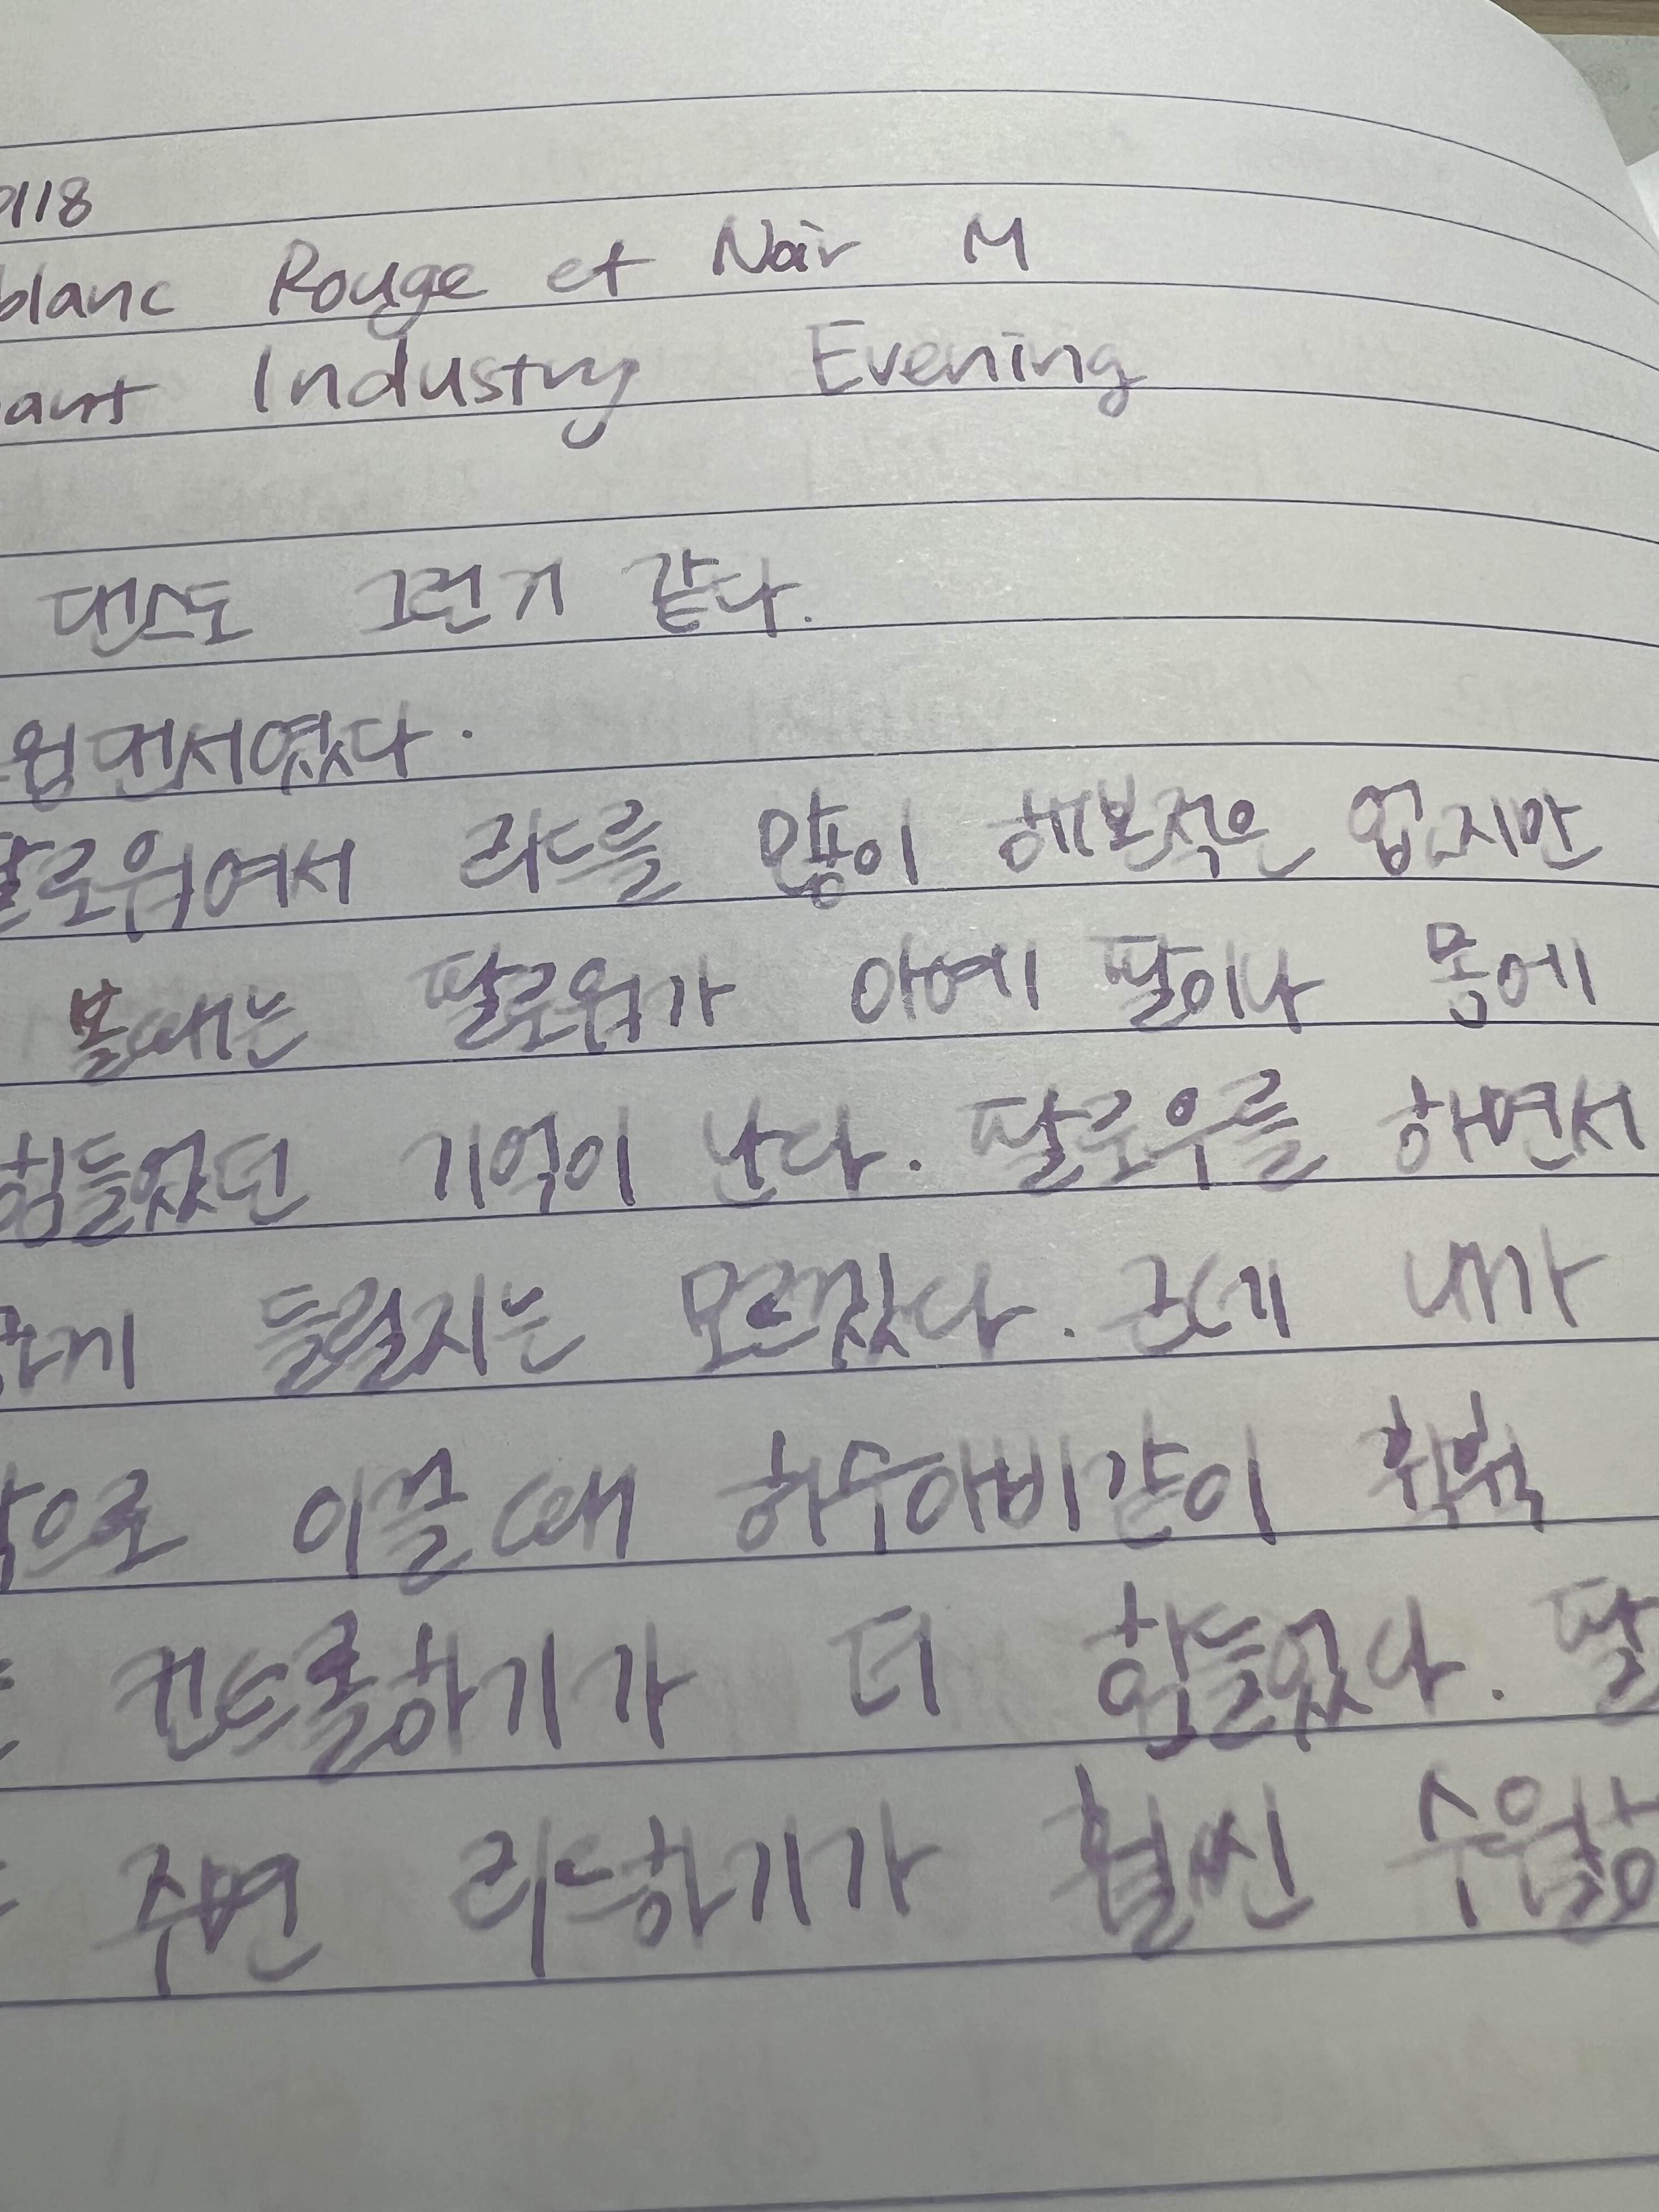 0118
blanc Rouge et Noir M
aint Industry Evening
댄스도 그런거 같다.
윙댄서였다.
팔로워여서 리드를 많이 해본적은 없지만
볼때는 팔로워가 아예 팔이나 몸에
힘들었던 기억이 난다. 팔로우를 하면서
들릴지는 모르겠다. 근데 내가
으로 이끌때 허수아비같이 훅훅
컨트롤하기가 더 힘들었다. 팔
주면 리드하기가 훨씬 수월